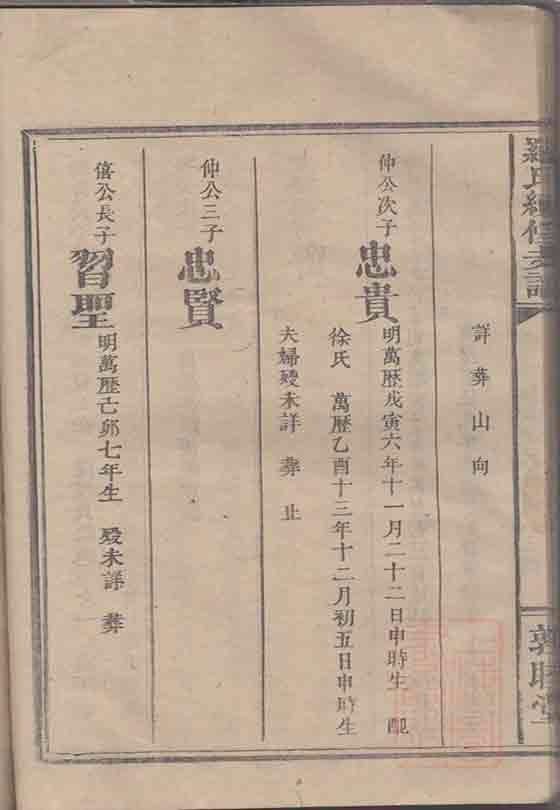 羅氏續修支譜
敦睦堂
詳葬山向
仲公次子忠貴明萬歷戊寅六年十一月二十二日申時生 配
徐氏 萬歷乙酉十三年十二月初五日申時生
夫婦歿未詳 葬止
仲公三子忠賢
僖公長子習聖明萬歷己卯七年生 歿未詳 葬